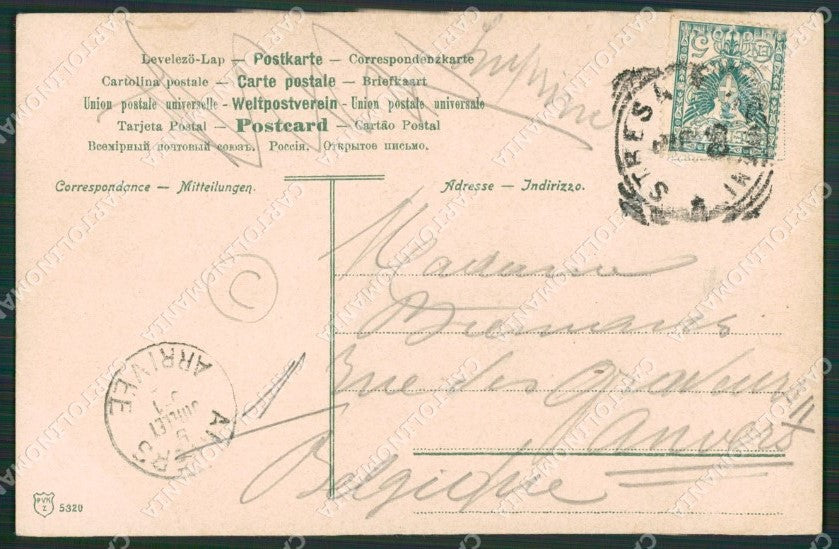 Levelező-Lap — Postkarte — Correspondenzkarte
Cartolina postale — Carte postale — Briefkaart
Union postale universelle — Weltpostverein — Union postale universale
Tarjeta Postal — Postcard — Cartão Postal
Всемірный почтовый союзъ. Россія. Открытое письмо.
Correspondance — Mitteilungen.
Adresse — Indirizzo.
STRESA
Madame
Rue des
Anvers
Belgique
ARRIVEE
ANVERS
5 JUILLET
C
PVK Z 5320
CARTOLINOMANIA